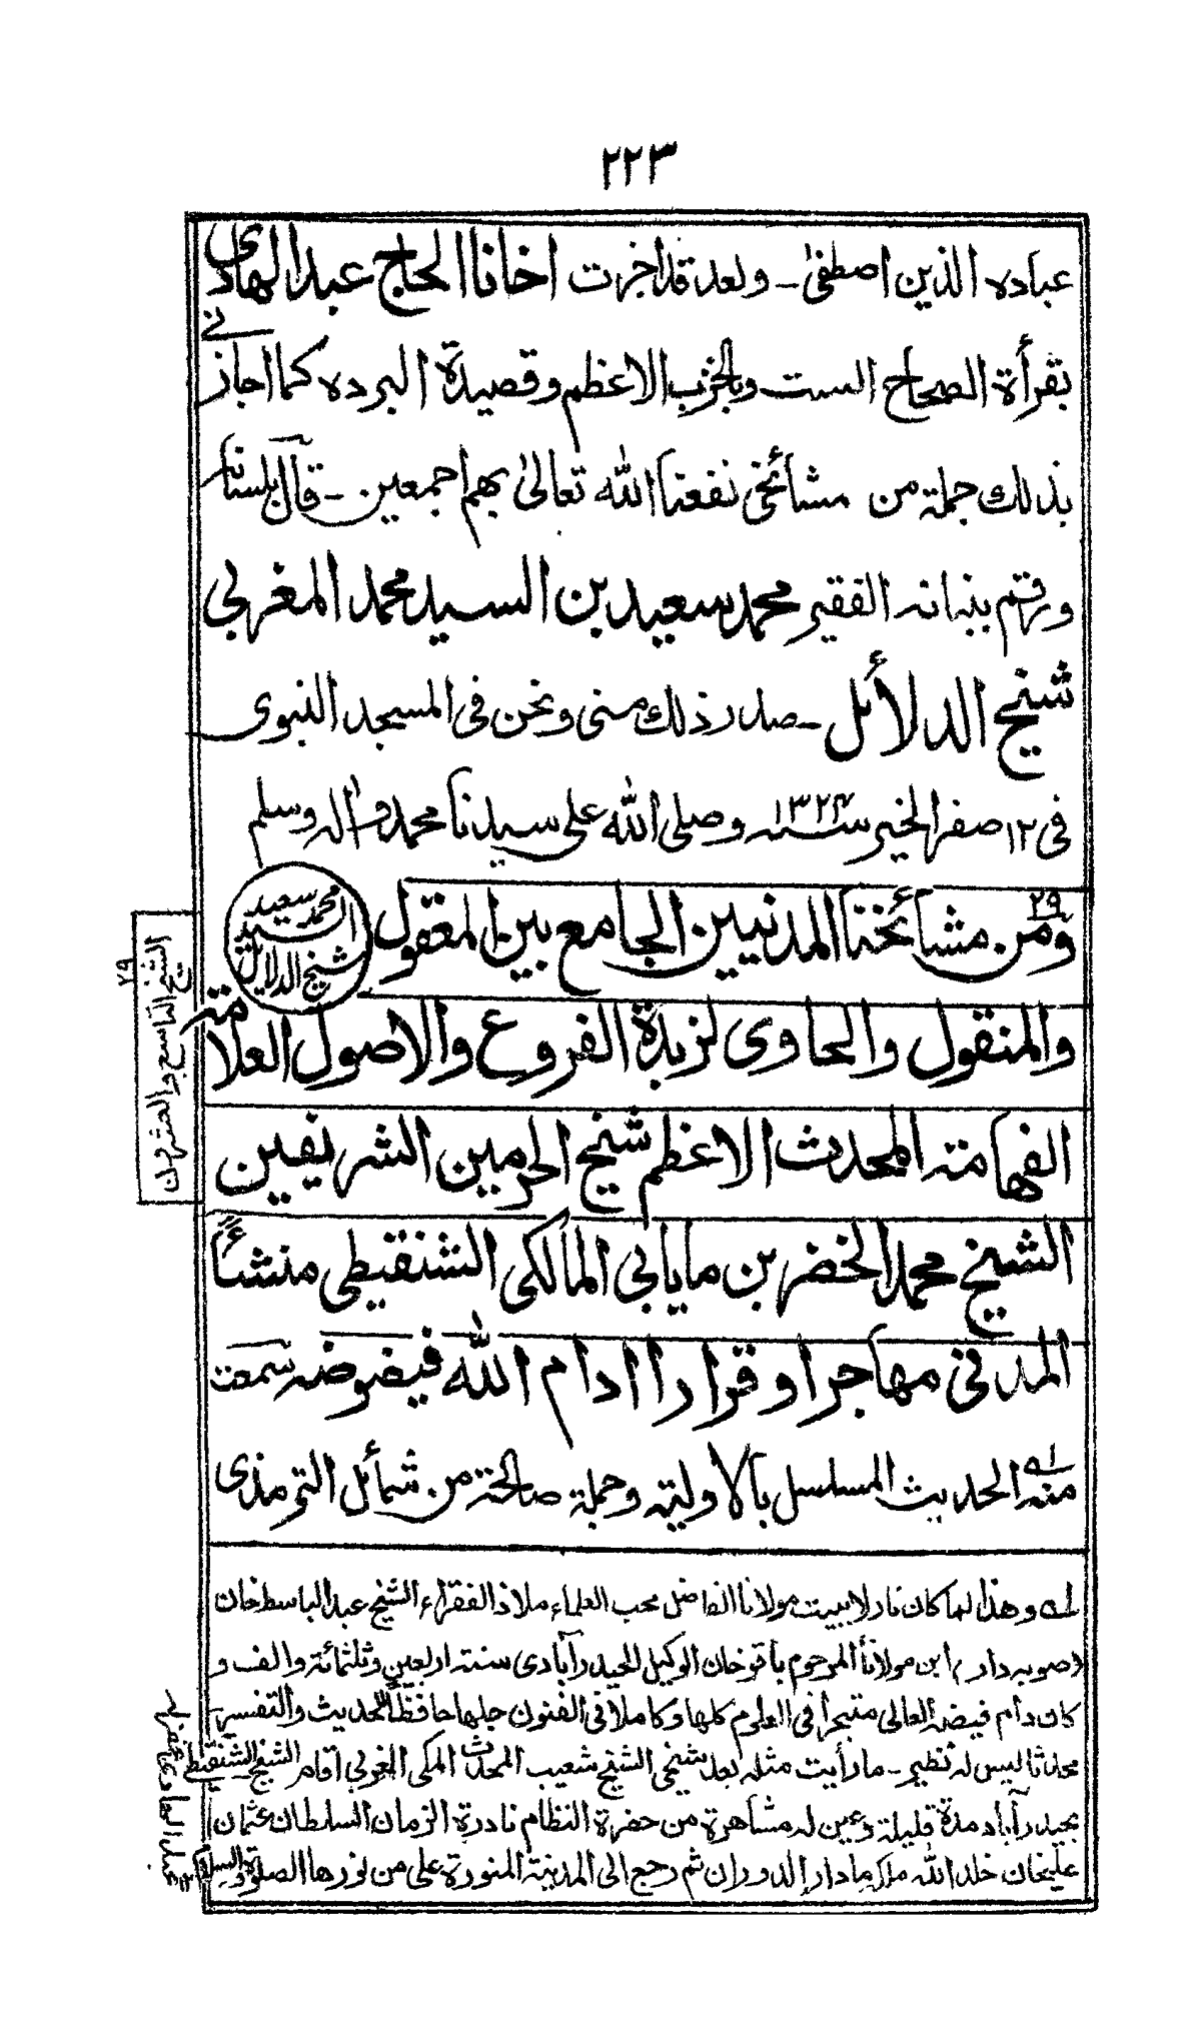 ٢٢٣
عباده الذين اصطفى ـ وبعد قد اجزت اخانا الحاج عبد الهادى
بقرأة الصحاح الست وبالحزب الاعظم وقصيدة البرده كما اجازنى
بذلك جملة من مشائخى نفعنا الله تعالىٰ بهم اجمعين ـ قال بلسانه
ورقم ببنانه الفقير محمد سعيد بن السيد محمد المغربى
شيخ الدلائل ـ صدر ذلك منى ونحن فى المسجد النبوى
فى ١٢ صفر الخير سنه ١٣٢٤ وصلى الله على سيدنا محمد واله وسلم
محمد سعيد السيد شيخ الدلايل
٢٩ ومن مشائخنا المدنيين الجامع بين المعقول
والمنقول والحاوى لزبدة الفروع والاصول العلامة
الفهامة المحدث الاعظم شيخ الحرمين الشريفين
الشيخ محمد الخضر بن مايابى المالكى الشنقيطى منشأً
المدنى مهاجرا وقرارا ادام الله فيوضه سمعت
منه له الحديث المسلسل بالاولية وجملة صالحة من شمائل الترمذى
الشيخ التاسع والعشرون ٢٩
له وهذا لما كان نازلا ببيت مولانا الفاضل محب العلماء ملاذ الفقراء الشيخ عبد الباسط خان
(صوبه دار) ابن مولانا المرحوم باقوخان الوكيل الحيدرآبادى سنة اربعين وثلثمائة والف و
كان دام فيضه العالى متبحرا فى العلوم كلها وكاملا فى الفنون جلها حافظا للحديث والتفسير
محدثا ليس له نظير ـ ما رأيت مثله بعد شيخى الشيخ شعيب المحدث المكى المغربى اقام الشيخ الشنقيطى
بحيدرآباد مدة قليلة وعين له مشاهرة من حضرة النظام نادرة الزمان السلطان عثمان
عليخان خلد الله ملكه مادار الدوران ثم رجع الى المدينة المنورة على من نورها الصلوة والسلام
عبد الهادى غفر له